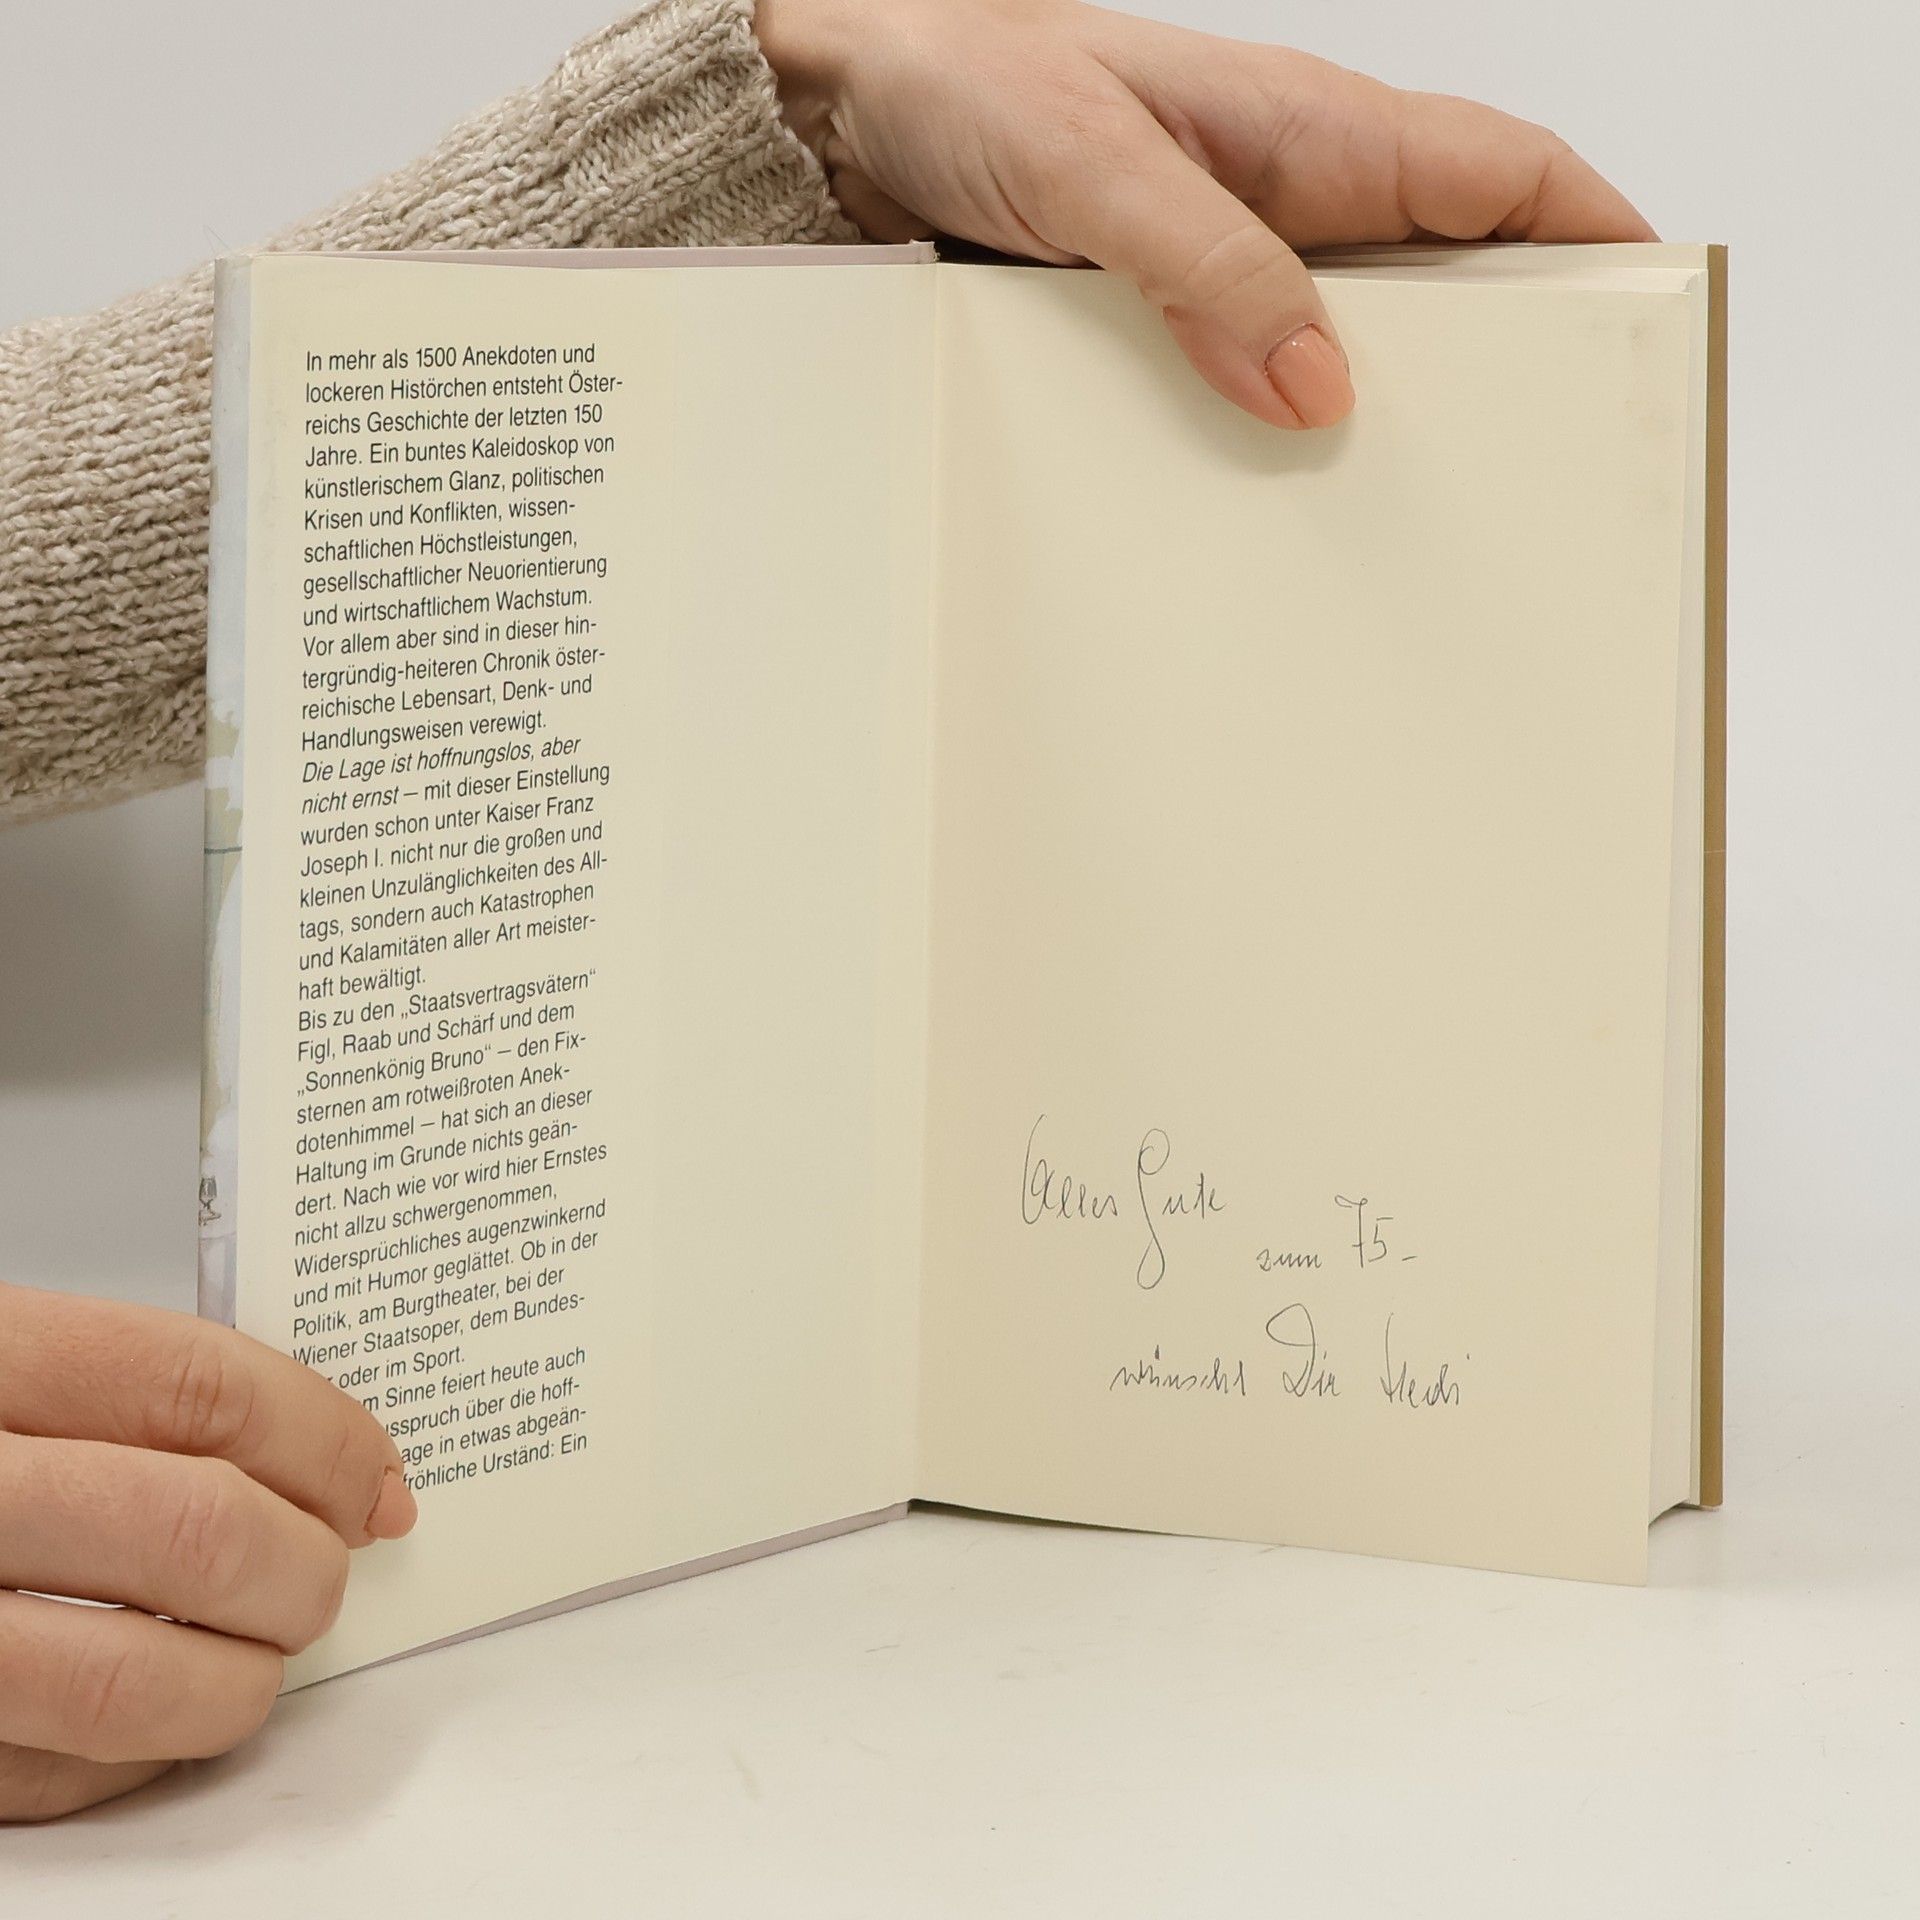 In mehr als 1500 Anekdoten und
lockeren Histörchen entsteht Öster-
reichs Geschichte der letzten 150
Jahre. Ein buntes Kaleidoskop von
künstlerischem Glanz, politischen
Krisen und Konflikten, wissen-
schaftlichen Höchstleistungen,
gesellschaftlicher Neuorientierung
und wirtschaftlichem Wachstum.
Vor allem aber sind in dieser hin-
tergründig-heiteren Chronik öster-
reichische Lebensart, Denk- und
Handlungsweisen verewigt.
Die Lage ist hoffnungslos, aber
nicht ernst – mit dieser Einstellung
wurden schon unter Kaiser Franz
Joseph I. nicht nur die großen und
kleinen Unzulänglichkeiten des All-
tags, sondern auch Katastrophen
und Kalamitäten aller Art meister-
haft bewältigt.
Bis zu den „Staatsvertragsvätern“
Figl, Raab und Schärf und dem
„Sonnenkönig Bruno“ – den Fix-
sternen am rotweißroten Anek-
dotenhimmel – hat sich an dieser
Haltung im Grunde nichts geän-
dert. Nach wie vor wird hier Ernstes
nicht allzu schwergenommen,
Widersprüchliches augenzwinkernd
und mit Humor geglättet. Ob in der
Politik, am Burgtheater, bei der
Wiener Staatsoper, dem Bundes-
oder im Sport.
Sinne feiert heute auch
über die hoff-
in etwas abgeän-
fröhliche Urständ: Ein
Alles Gute
zum 75-
wünscht Dir Hedi